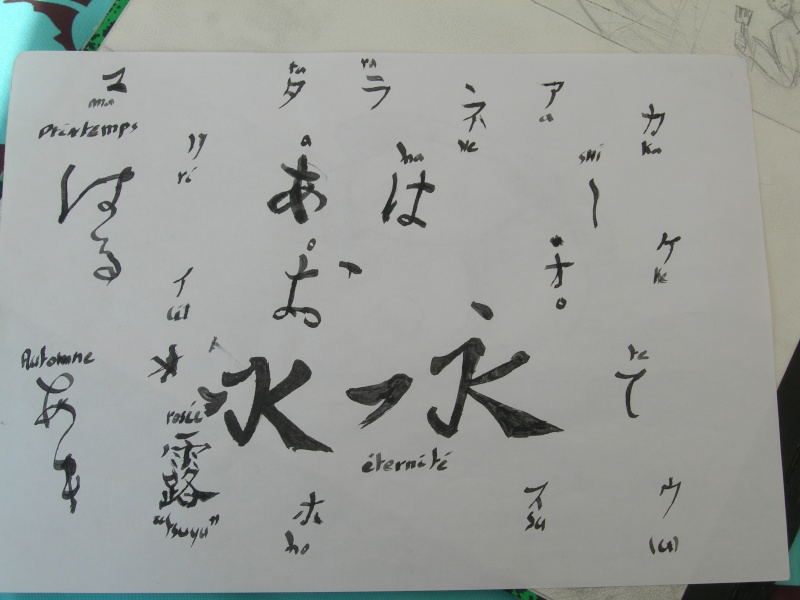 マ
ma
printemps
はる
リ
ri
イ
(i)
ta
タ
ra
ラ
ネ
Ne
ア
a
カ
Ka
a
あ
ha
は
SHi
し
o
お
オ
o
ケ
Ke
Automne
あき
rosée
露
"tsuyu"
水
永
éternité
te
て
ホ
ho
ス
su
ウ
(u)